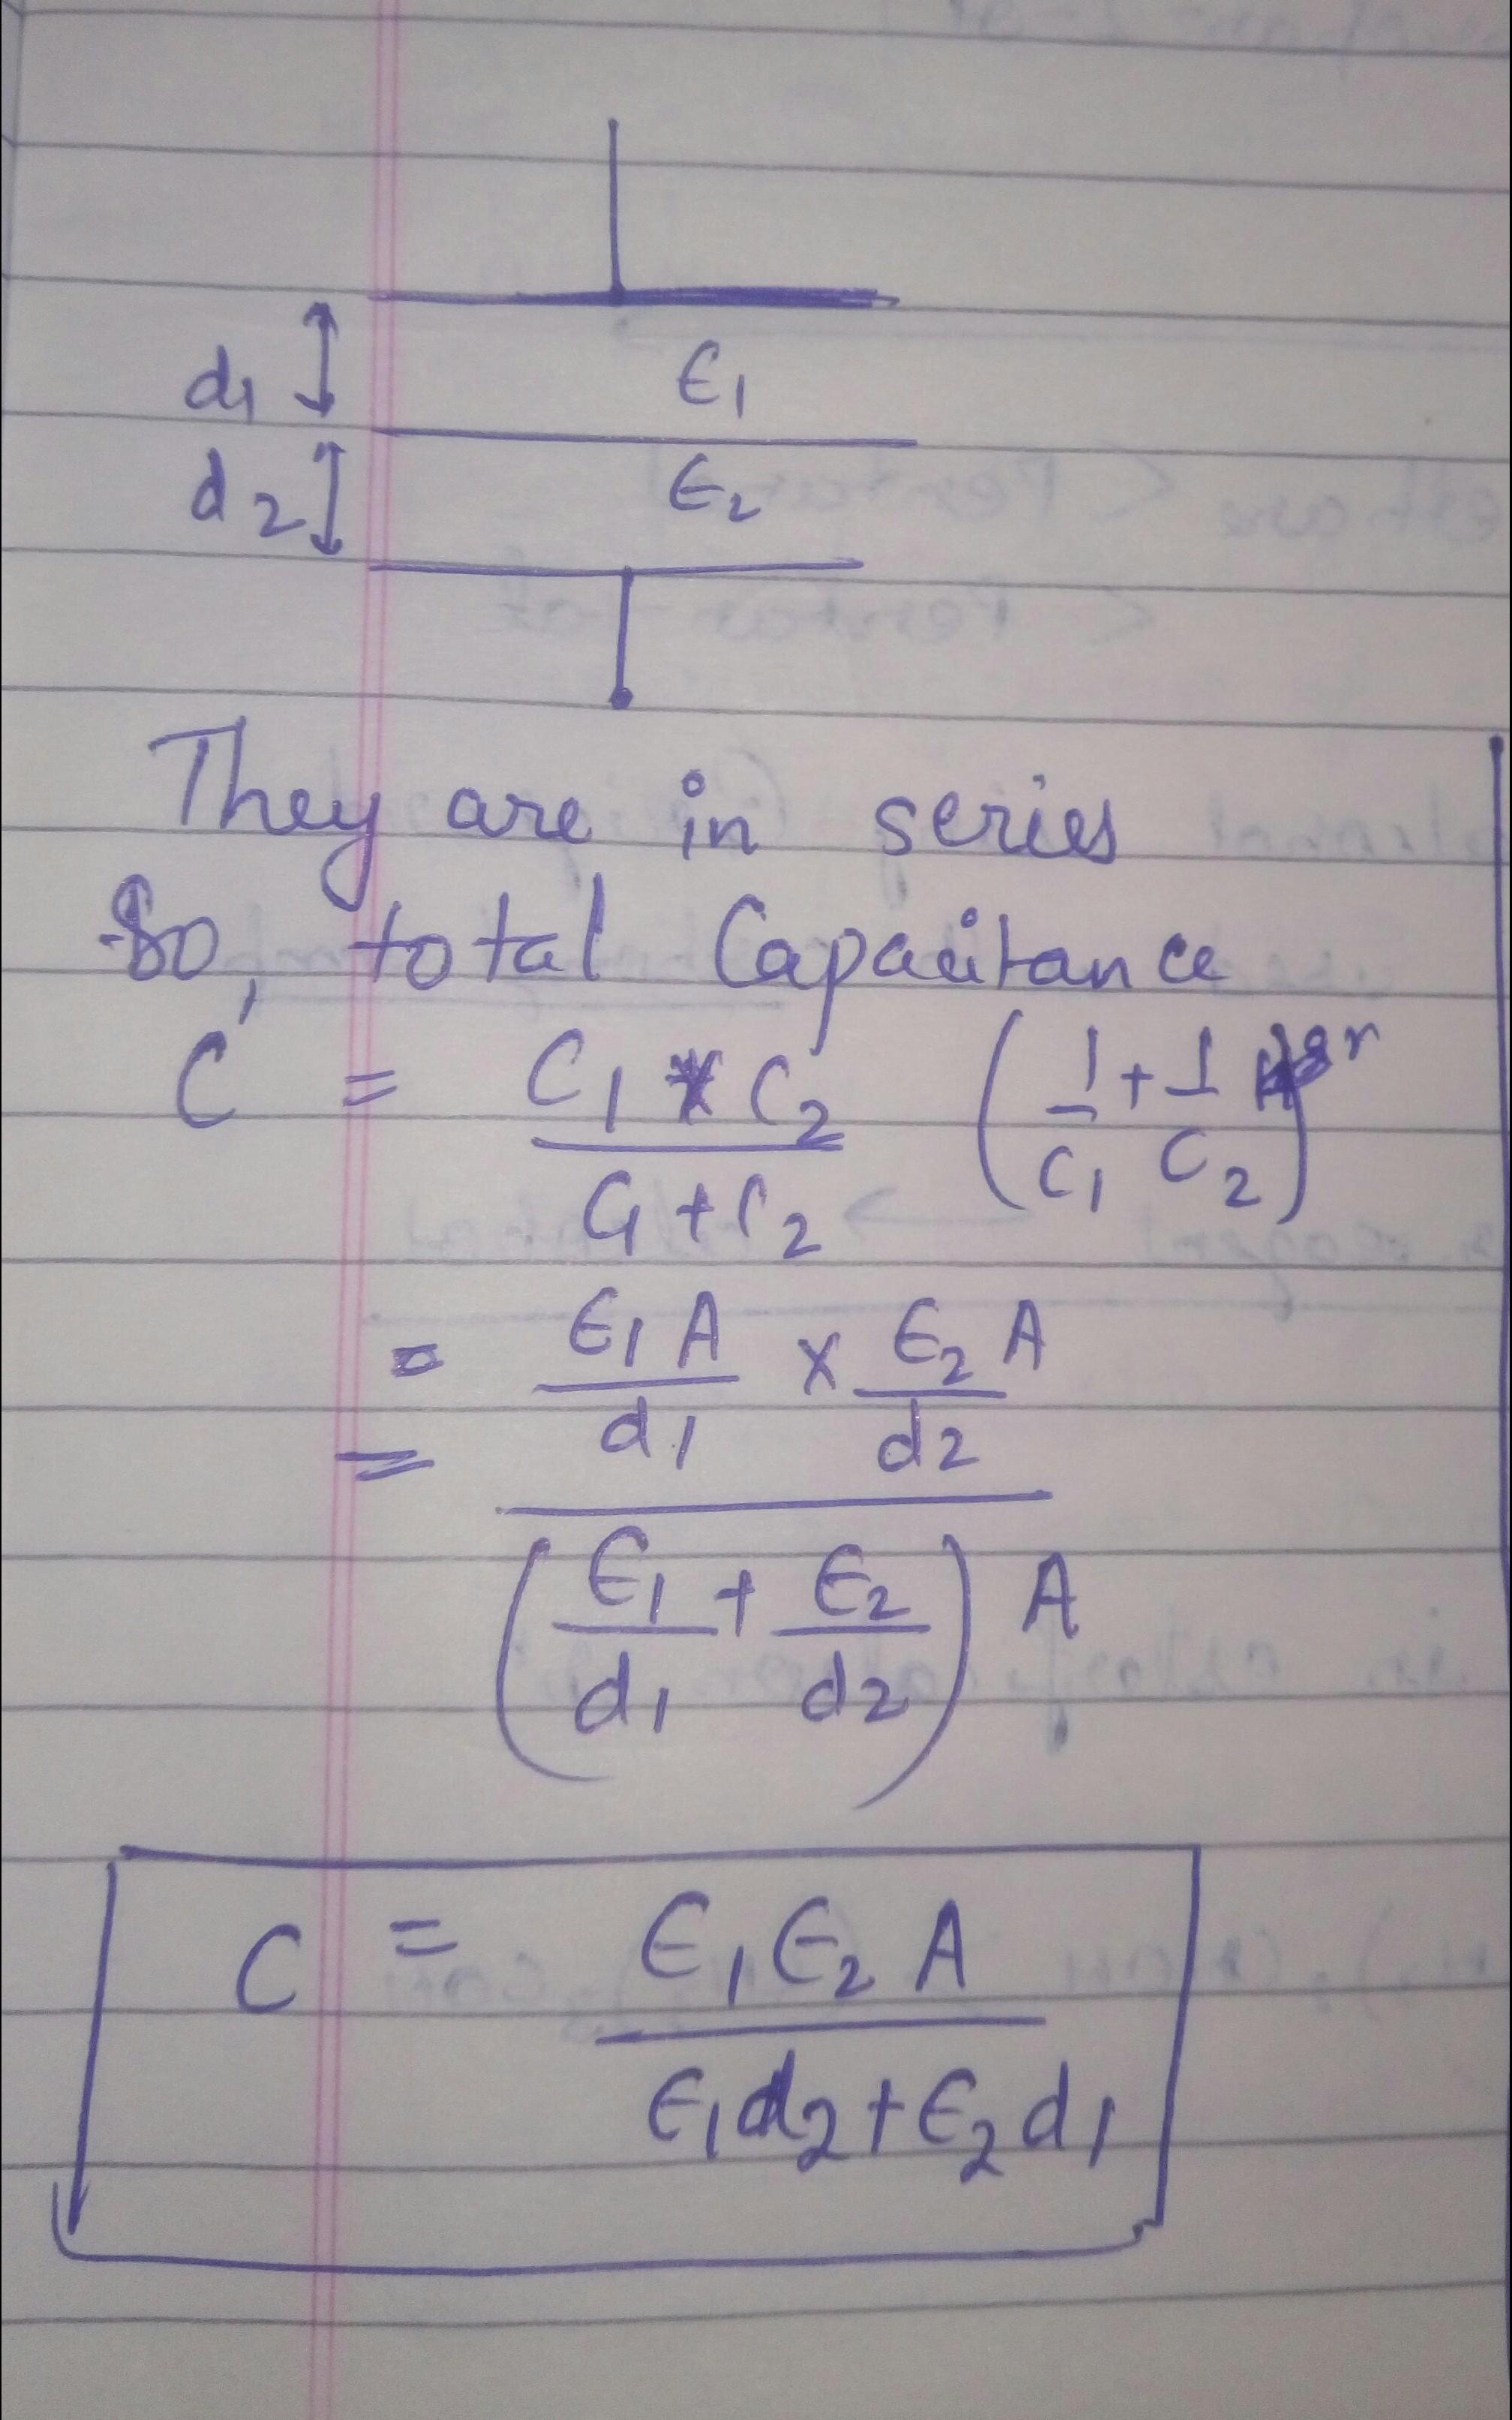 d1 ϵ1
d2 ϵ2
They are in series
So, total Capacitance
C = C1 * C2 (1 + 1
C1 + C2 C1 C2)
= ϵ1 A × ϵ2 A
d1 d2
=
(ϵ1 + ϵ2) A
d1 d2
C = ϵ1 ϵ2 A
ϵ1 d2 + ϵ2 d1